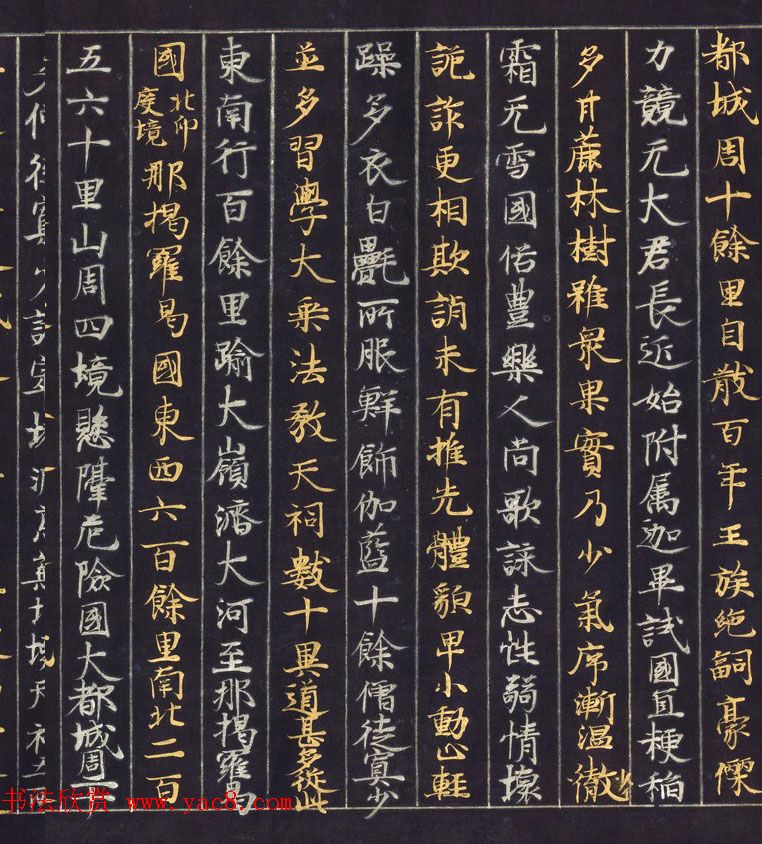 都城周十餘里自數百年王族絕嗣豪傑
力競无大君長近始附属迦畢試國宜粳稻
多甘蔗林樹雖衆果實乃少氣序漸温微
霜无雪國俗豐樂人尚歌詠志性弱情壞
詭詐更相欺誚未有推先體貌卑小動止輕
躁多衣白㲲所服鮮飾伽藍十餘僧徒寡少
並多習學大乘法教天祠數十異道甚多從此
東南行百餘里踰大嶺濟大河至那揭羅曷
國北印度境那揭羅曷國東西六百餘里南北二百
五六十里山周四境懸隥危險國大都城周
寡少諸窣堵 天祠五
书法欣赏 www.yac8.com